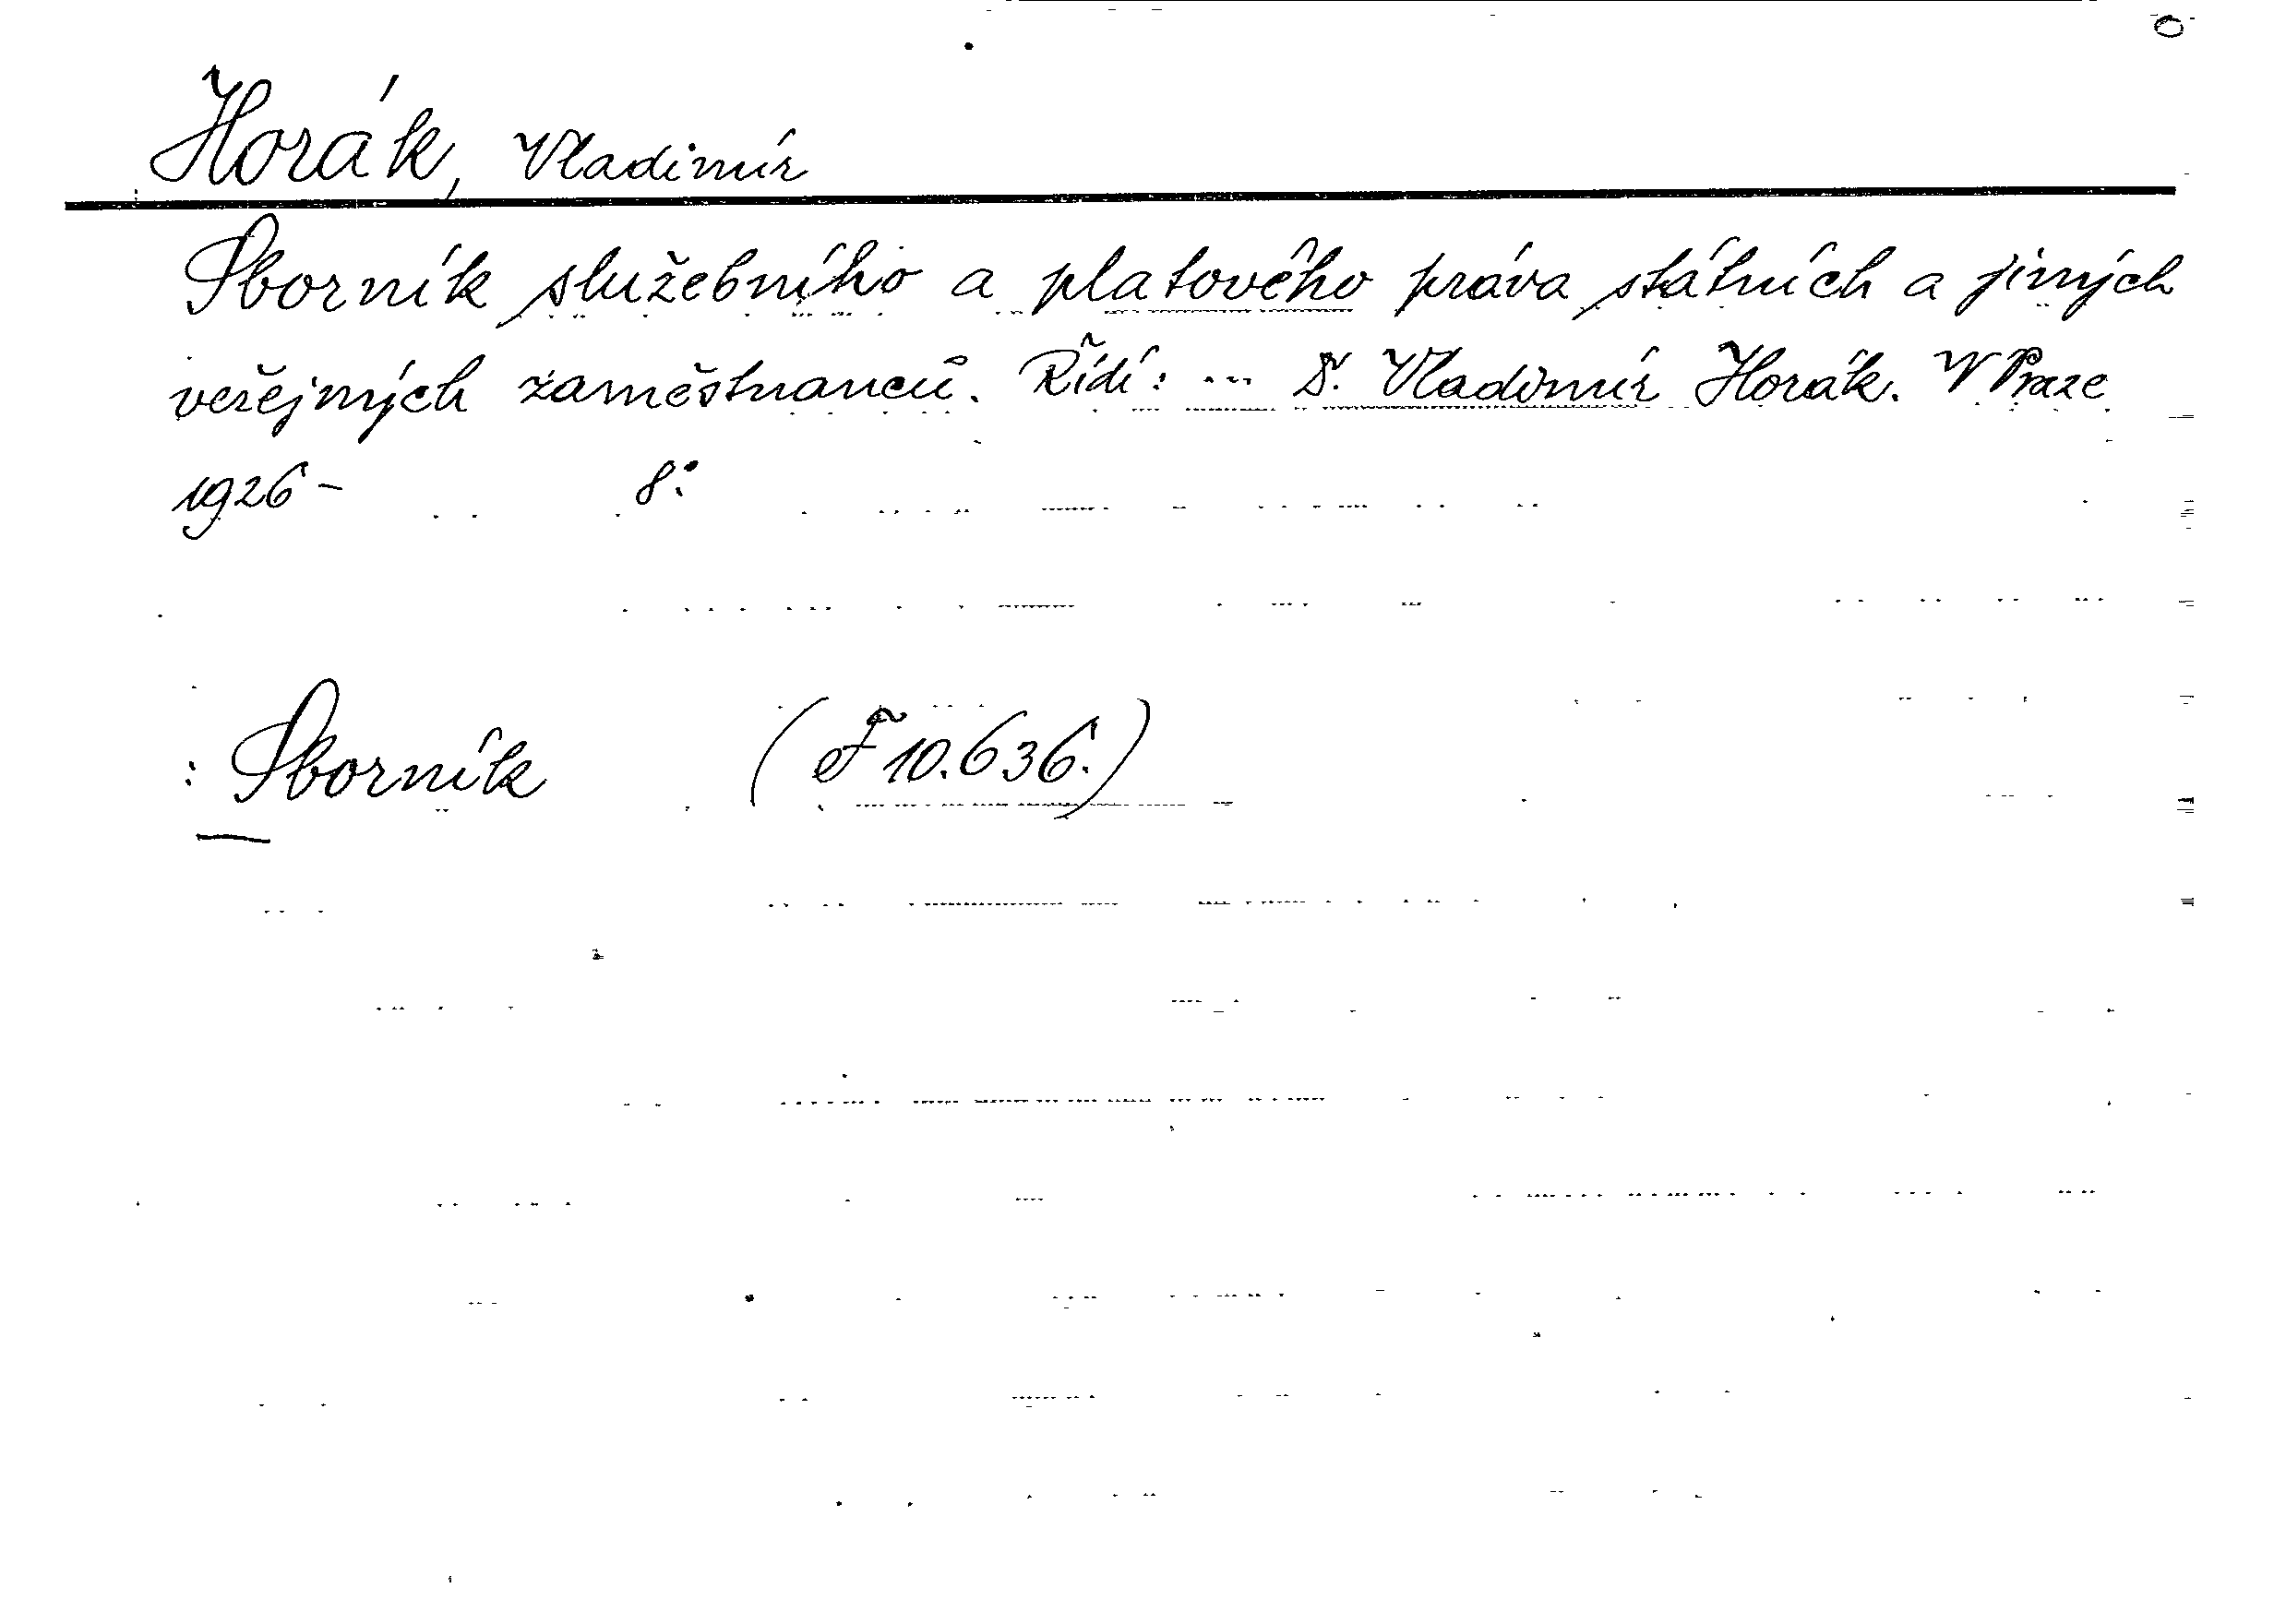 Horák, Vladimír
Sborník služebního a platového práva státních a jiných
veřejných zaměstnanců. Řídí: ... Dr. Vladimír Horák. V Praze
1926– 8°.
: Sborník (F 10.636.)